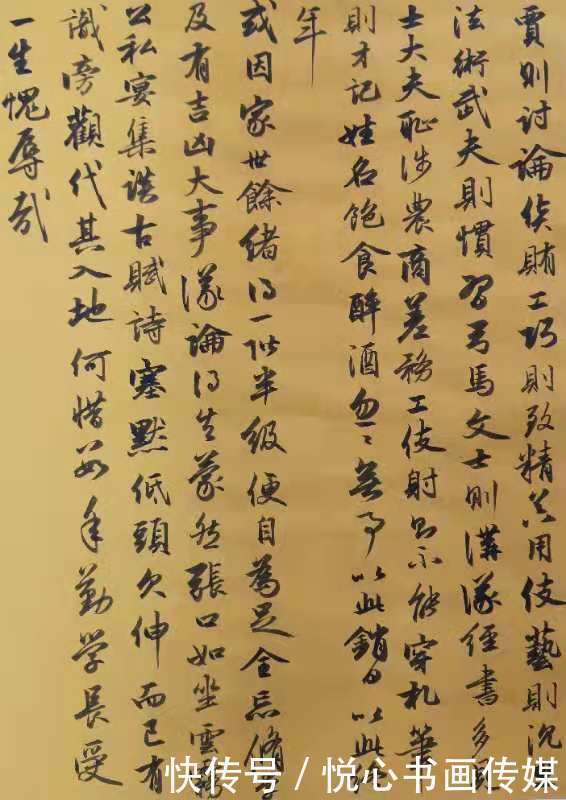 賈則討論貨賄工巧則致精器用伎藝則沉
法術武夫則慣習弓馬文士則講議經書多見
士大夫恥涉農商差務工伎射則不能穿札筆
則才記姓名飽食醉酒忽〻無事以此銷日以此終
年
或因家世餘緒得一階半級便自為足全忘脩學
及有吉凶大事議論得失蒙然張口如坐雲霧
公私宴集談古賦詩塞默低頭欠伸而已有
識傍觀代其入地何惜數年勤学長受
一生愧辱哉
快传号/悦心书画传媒